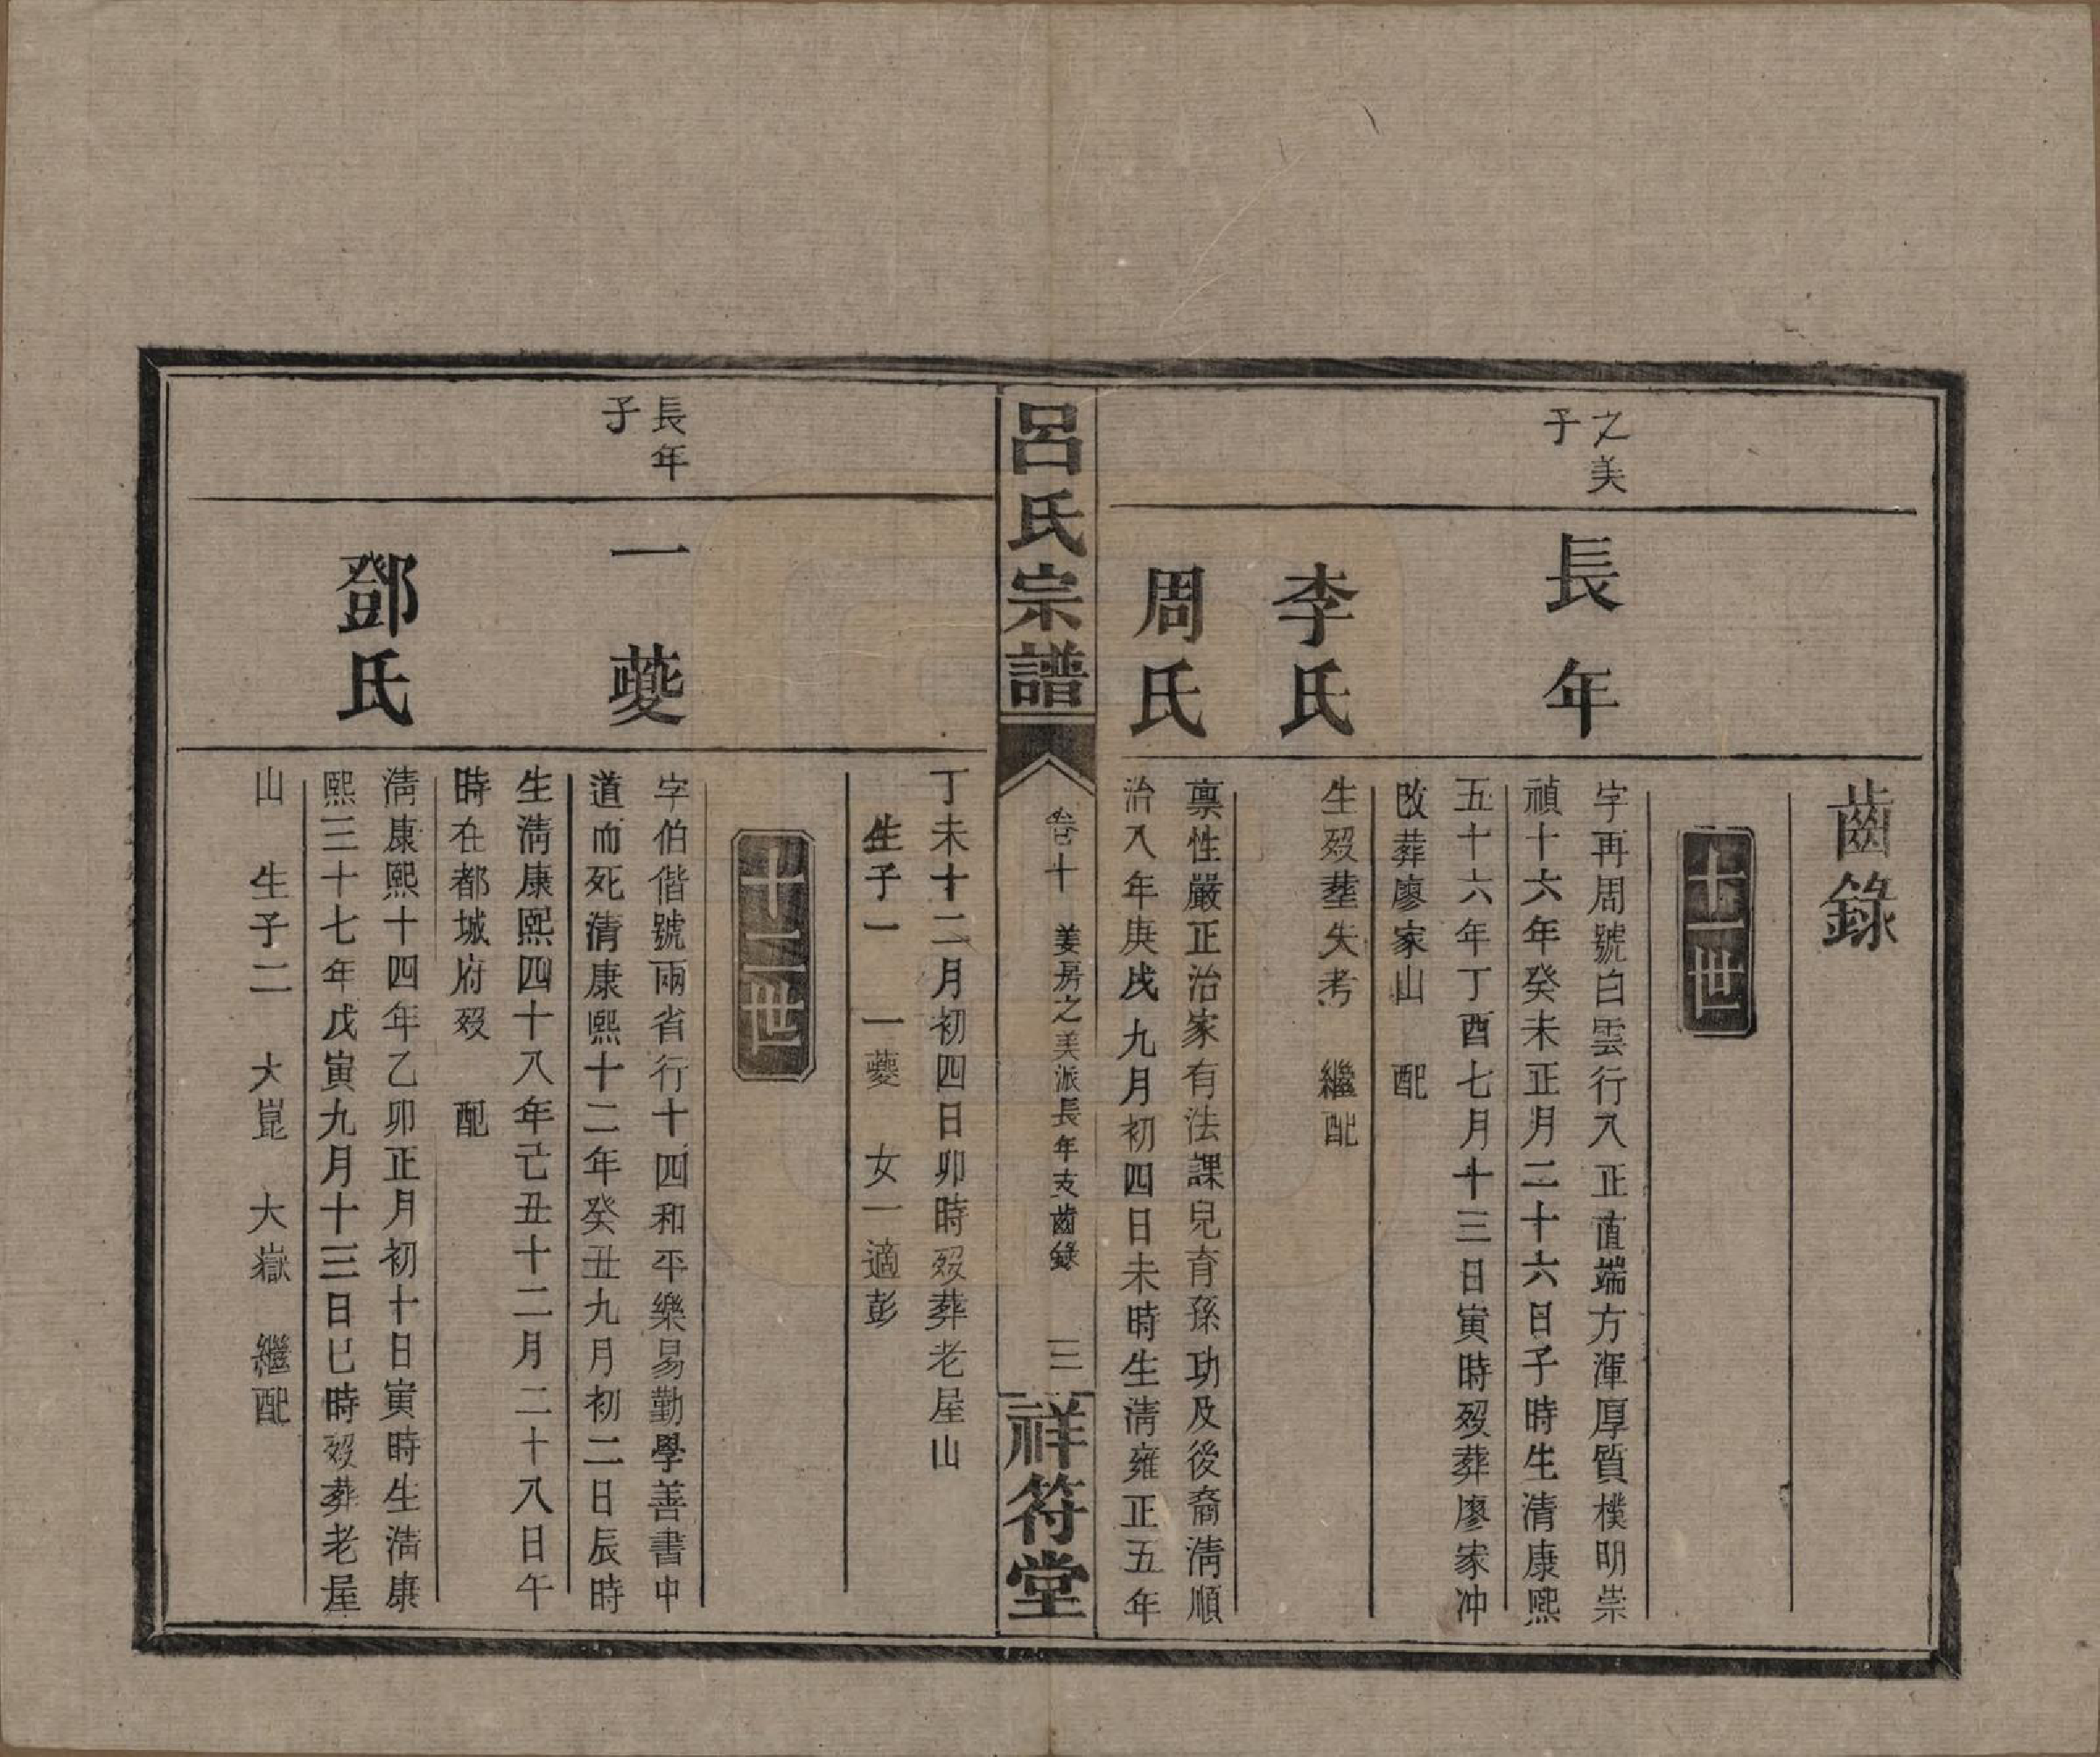 齒錄
十一世
之美
子
長年
字再周號白雲行八正直端方渾厚質樸明崇
禎十六年癸未正月二十六日子時生清康熙
五十六年丁酉七月十三日寅時歿葬廖家冲
改葬廖家山　配
李氏
生歿塟失考　繼配
周氏
禀性嚴正治家有法課兒育孫功及後裔淸順
治八年庚戌九月初四日未時生淸雍正五年
呂氏宗譜
卷十　姜房之美派長年支齒錄　三
祥符堂
丁未十二月初四日卯時歿葬老屋山
生子一　一蘷　女一適彭
十二世
長年
子
一蘷
字伯偕號兩省行十四和平樂易勤學善書中
道而死清康熙十二年癸丑九月初二日辰時
生淸康熙四十八年己丑十二月二十八日午
時在都城府歿　配
鄧氏
淸康熙十四年乙卯正月初十日寅時生淸康
熙三十七年戊寅九月十三日巳時歿葬老屋
山　生子二　大崑　大嶽　繼配